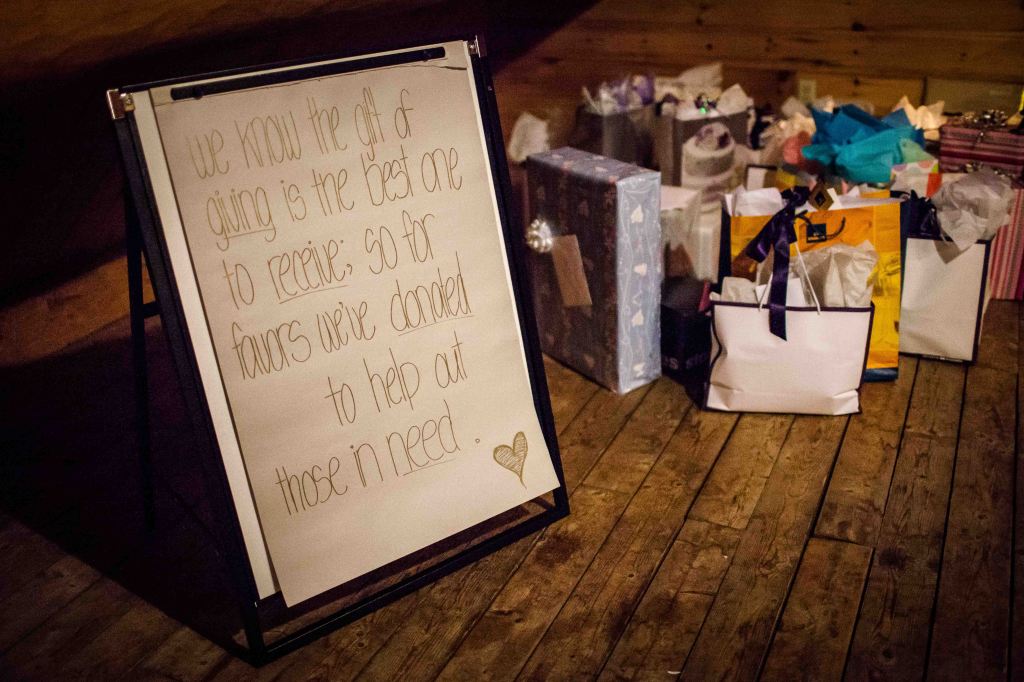 we know the gift of
giving is the best one
to receive; so for
favors we've donated
to help out
those in need.